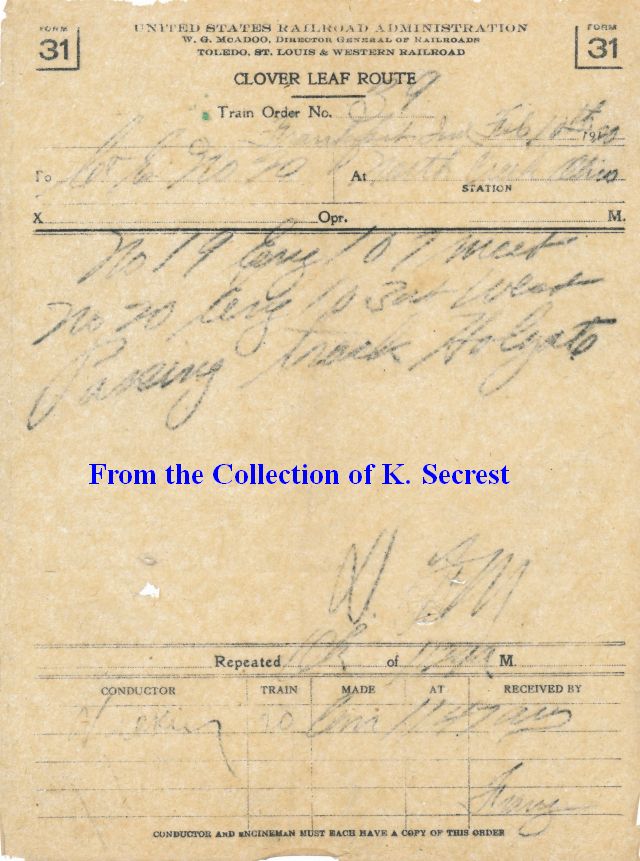 FORM 31
UNITED STATES RAILROAD ADMINISTRATION
W. G. McADOO, DIRECTOR GENERAL OF RAILROADS
TOLEDO, ST. LOUIS & WESTERN RAILROAD
FORM 31
CLOVER LEAF ROUTE
Train Order No. 39
Frankfort Ind Feb 191
To C & E No 20 At North Ohio
STATION
X Opr. M.
No 19 Eng 107 meet
No 20 Eng 103 at West
Passing track Holgate
From the Collection of K. Secrest
Repeated of M.
CONDUCTOR TRAIN MADE AT RECEIVED BY
20 Com
CONDUCTOR AND ENGINEMAN MUST EACH HAVE A COPY OF THIS ORDER